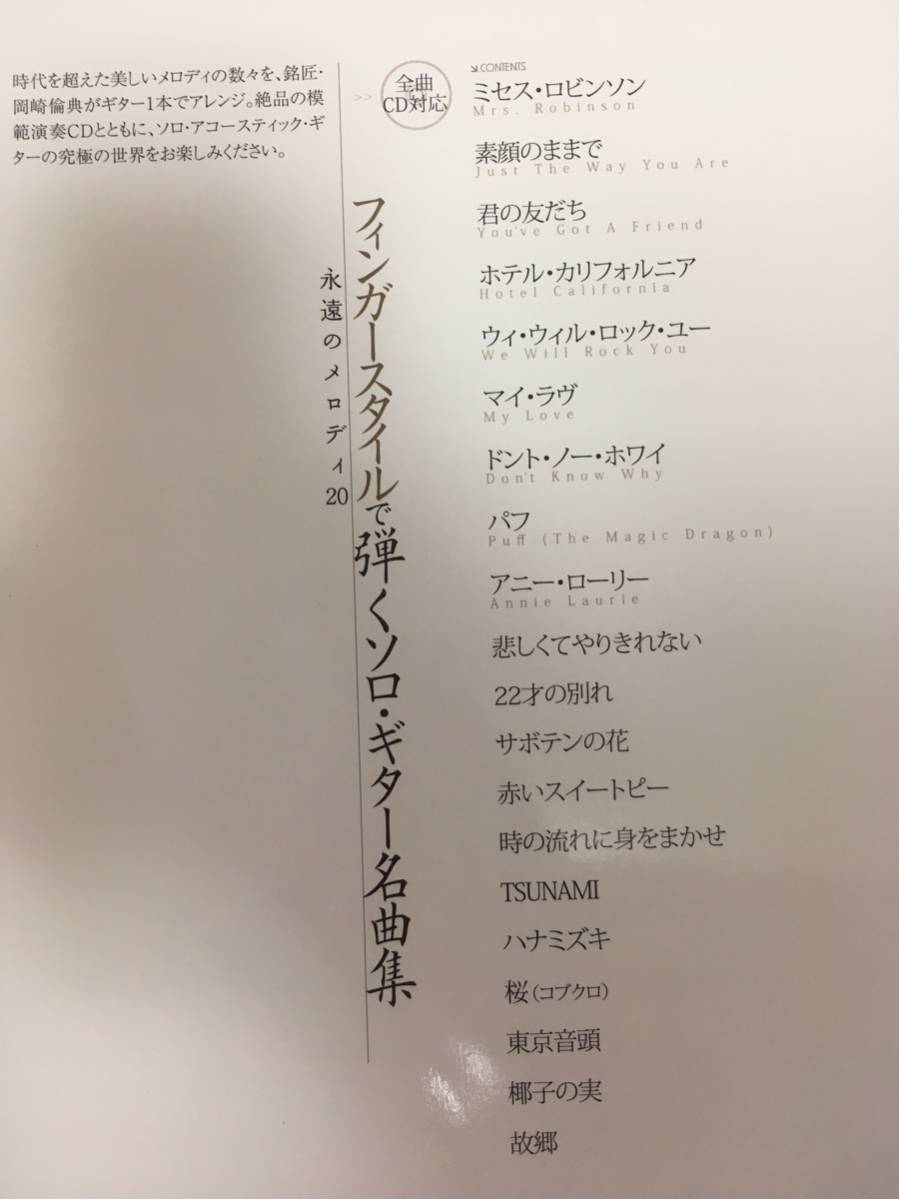 時代を超えた美しいメロディの数々を、銘匠・
岡崎倫典がギター1本でアレンジ。絶品の模
範演奏CDとともに、ソロ・アコースティック・ギ
ターの究極の世界をお楽しみください。
>>
全曲
CD対応
フィンガースタイルで弾くソロ・ギター名曲集
永遠のメロディ20
CONTENTS
ミセス・ロビンソン
Mrs. Robinson
素顔のままで
Just The Way You Are
君の友だち
You've Got A Friend
ホテル・カリフォルニア
Hotel California
ウィ・ウィル・ロック・ユー
We Will Rock You
マイ・ラヴ
My Love
ドント・ノー・ホワイ
Don't Know Why
パフ
Puff (The Magic Dragon)
アニー・ローリー
Annie Laurie
悲しくてやりきれない
22才の別れ
サボテンの花
赤いスイートピー
時の流れに身をまかせ
TSUNAMI
ハナミズキ
桜（コブクロ）
東京音頭
椰子の実
故郷